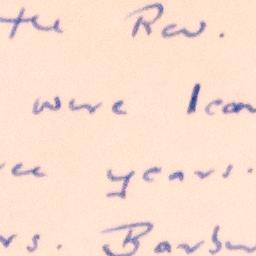 the Rev.
were
years.
rs. Barbu